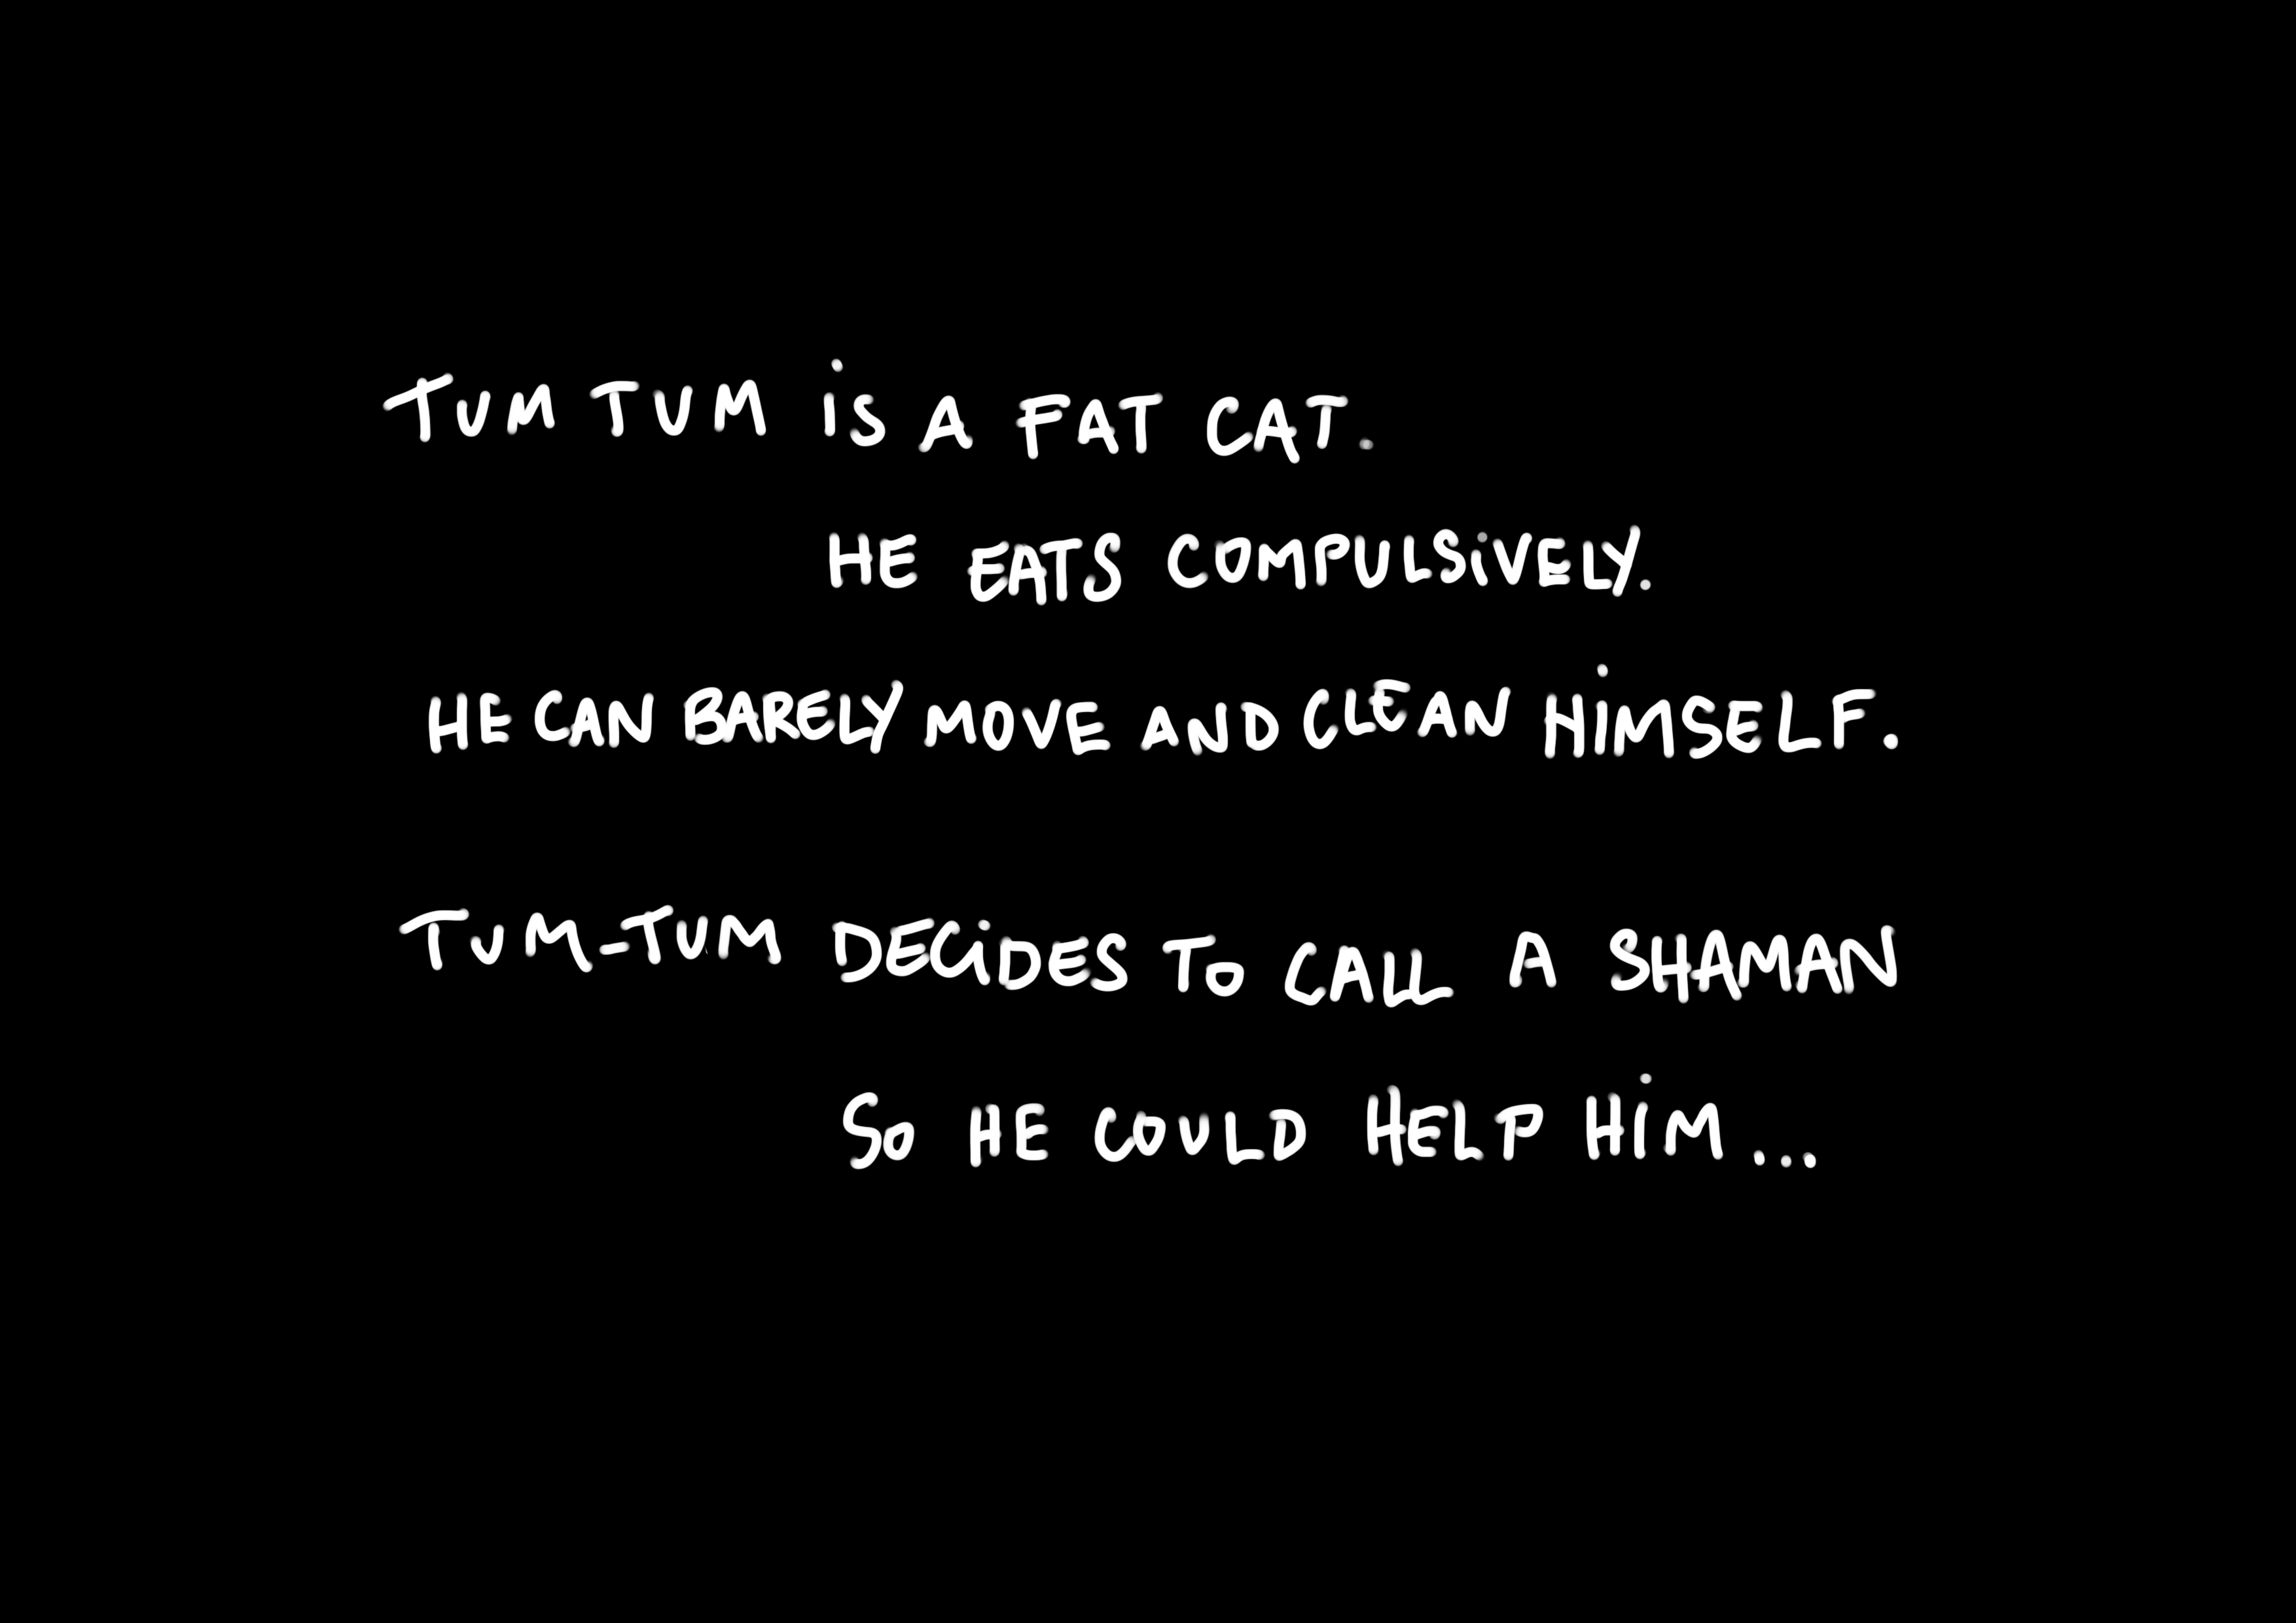 TUM TUM iS A FAT CAT.
HE EATS COMPULSiVELY.
HE CAN BARELY MOVE AND CLEAN HiMSELF.
TUM-TUM DECiDES TO CALL A SHAMAN
SO HE COULD HELP HiM...